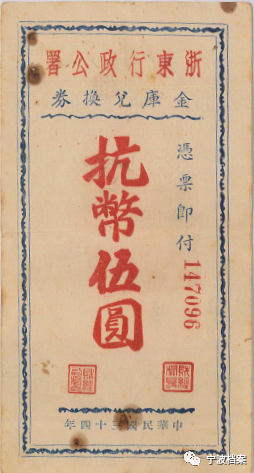 浙東行政公署
金庫兌換券
憑票即付
抗幣伍圓
147096
中華民國三十四年
宁波档案